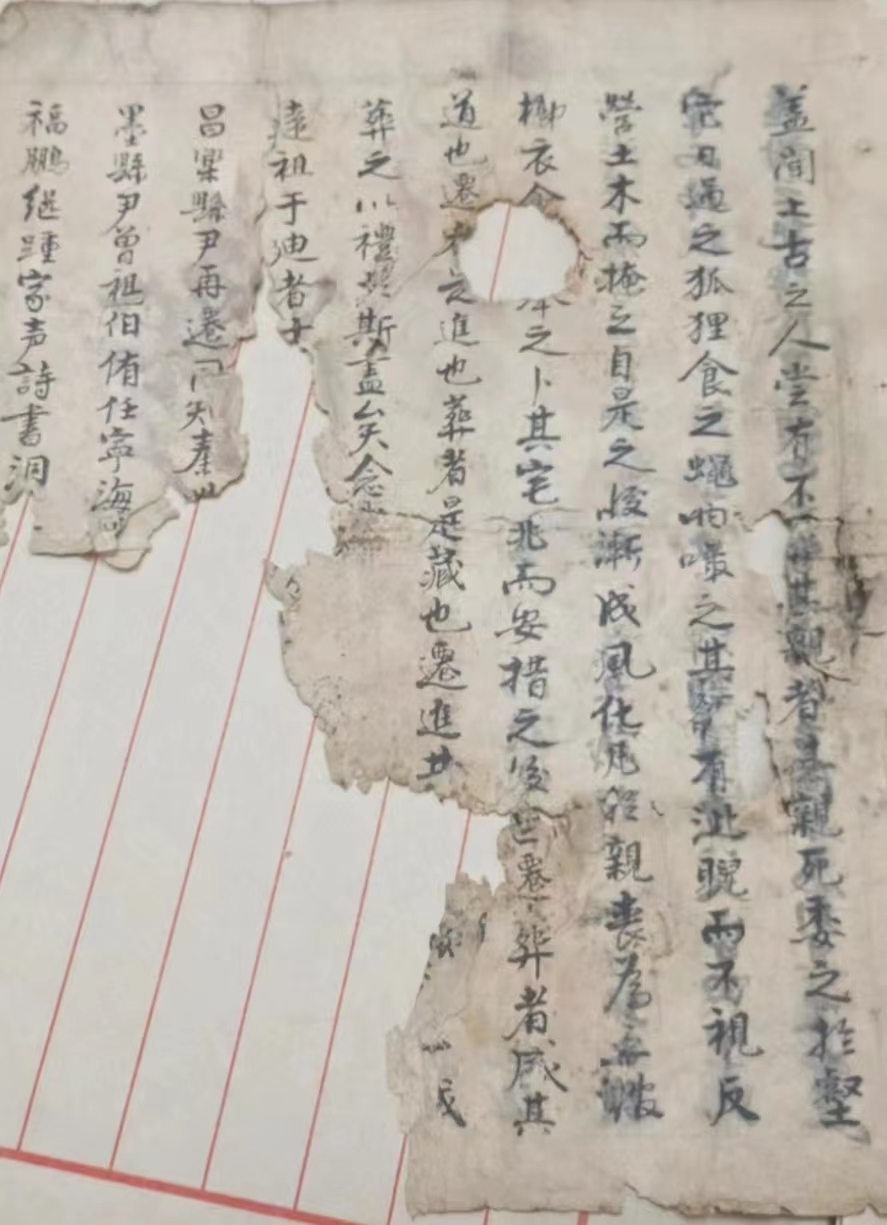 蓋聞上古之人尝有不葬其親者其親死委之於壑
它日過之狐狸食之蠅蚋嘬之其有泚睨而不視反
營土木而掩之自是之後漸成風化凡於親喪為
椰衣之卜其宅兆而安措之後世遷葬者咸其
道也遷者進也葬者是藏也遷進
葬之以禮斯盡矣念
遠祖于迪者
昌樂縣尹再遷同知泰
墨縣尹曾祖伯侑任寧海
福鵬继踵家声詩書洞